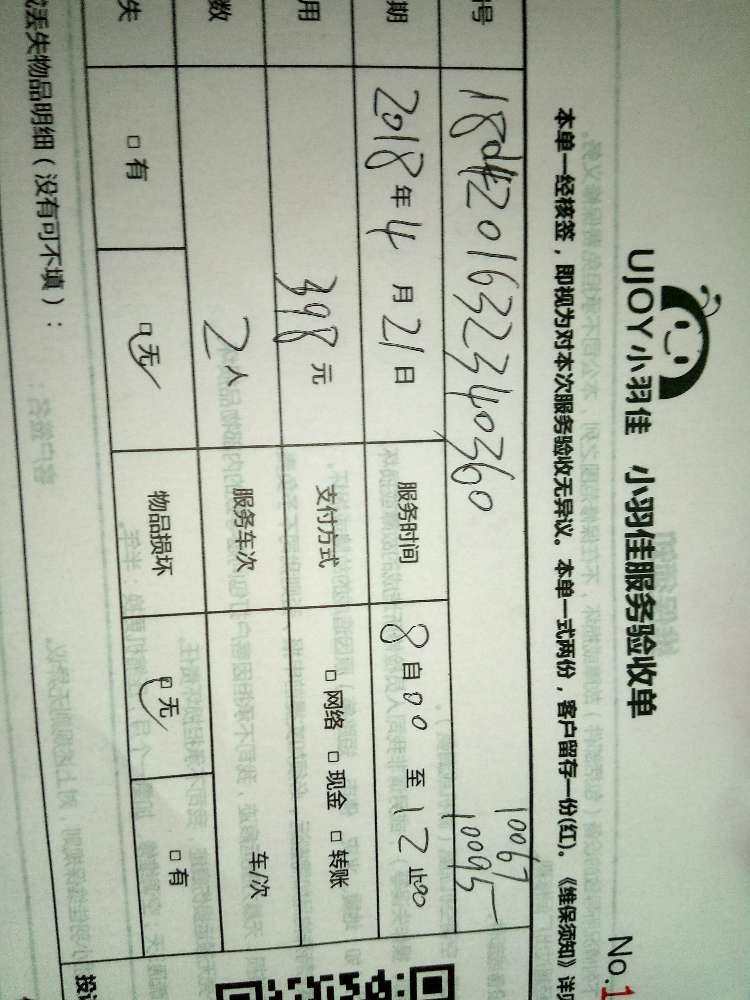 UJOY小羽佳 小羽佳服务验收单
No.1
本单一经核签，即视为对本次服务验收无异议。本单一式两份，客户留存一份(红)。《维保须知》详见
10067
号 10095
期 2018年4月21日 服务时间 8自00至12止00
用 398元 支付方式 □网络 □现金 □转账
数 2人 服务车次 车/次
失 □有 □无 物品损坏 □无 □有
丢失物品明细（没有可不填）：
投